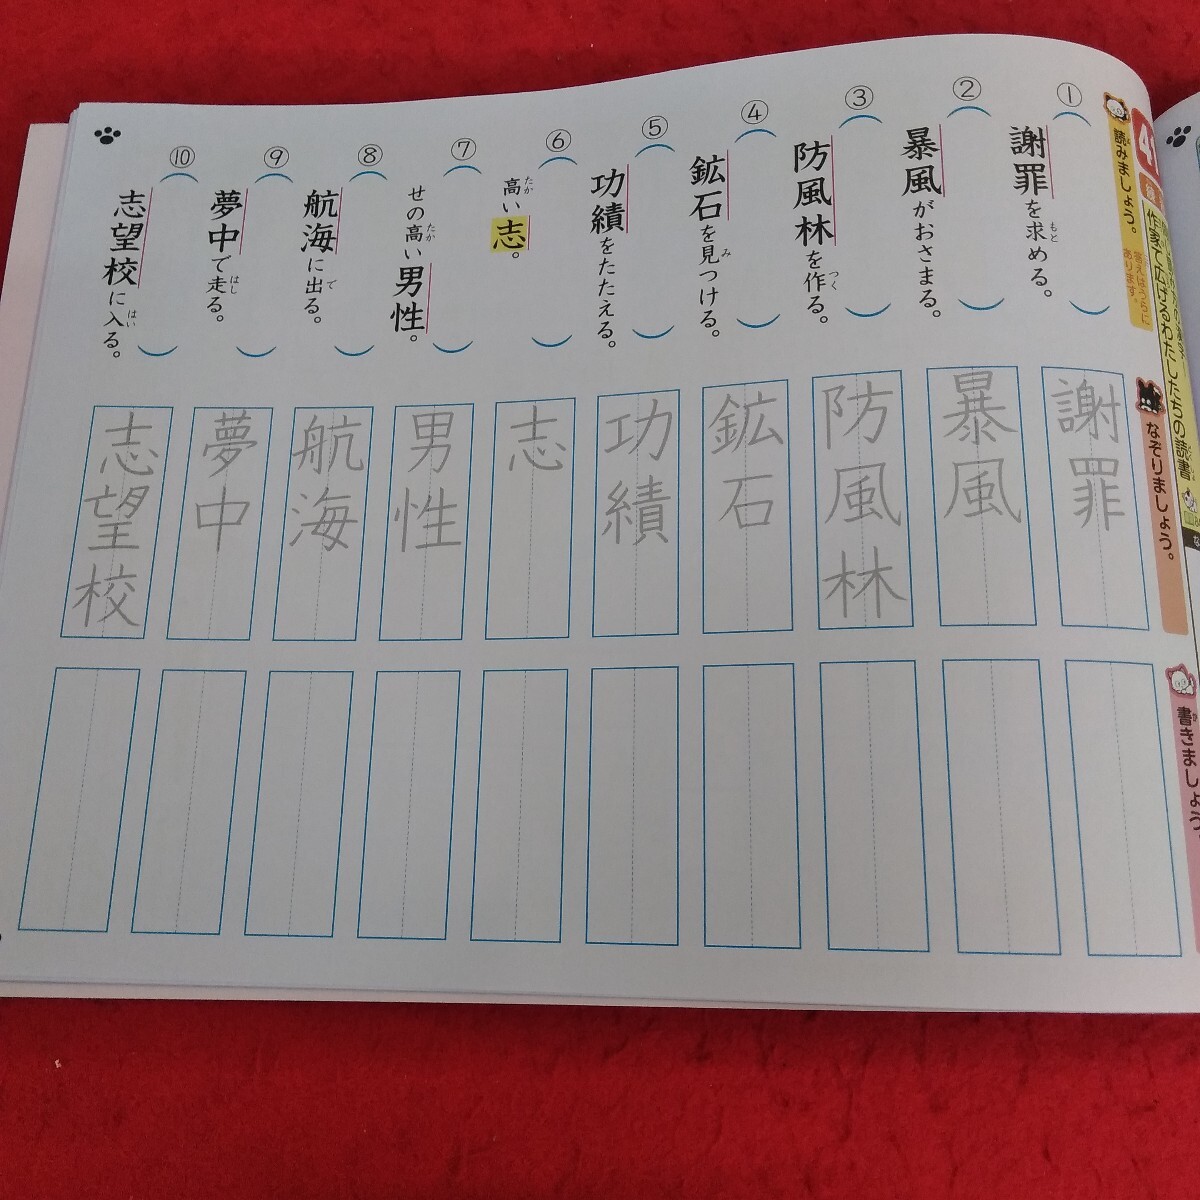 読みましょう。
答えはうらに
あります。
① 謝罪を求める。
② 暴風がおさまる。
③ 防風林を作る。
④ 鉱石を見つける。
⑤ 功績をたたえる。
⑥ 高い志。
⑦ せの高い男性。
⑧ 航海に出る。
⑨ 夢中で走る。
⑩ 志望校に入る。
作家で広げるわたしたちの読書
なぞりましょう。
謝罪
暴風
防風林
鉱石
功績
志
男性
航海
夢中
志望校
書きましょう